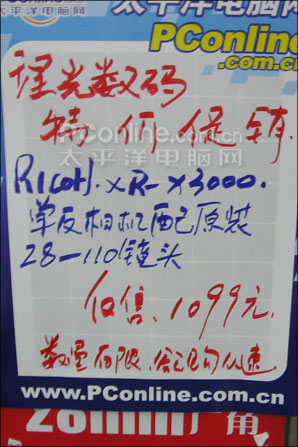 太平洋电脑网
太平洋电脑网
PConline
.com.cn
理光数码
特价促销
PConline.com.cn
太平洋电脑网
RICOH.XR-X3000.
单反相机配原装
28-110镜头
仅售.1099元.
数量有限.欲购从速
www.PConline.com.cn
Zoom 广角